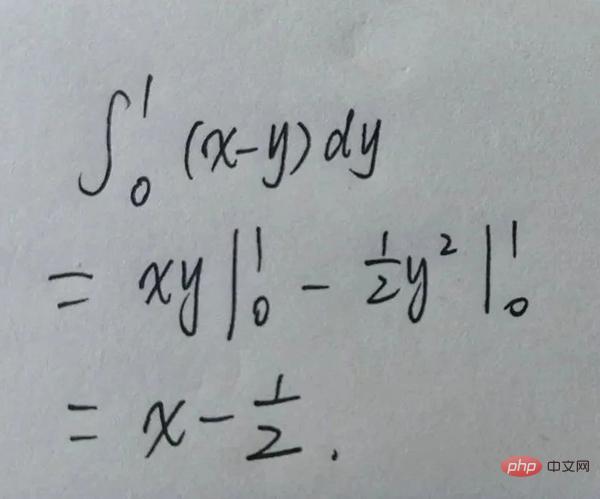 ∫₀¹ (x-y) dy
= xy |₀¹ - ½y² |₀¹
= x - ½.
php 中文网